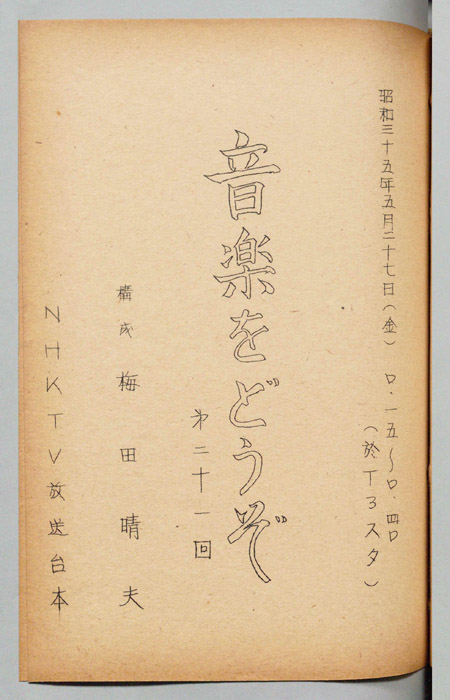 昭和三十五年五月二十七日(金) 0.一五〜0.四0
(於T3スタ)
音楽をどうぞ
第二十一回
構成 梅田晴夫
NHKTV放送台本